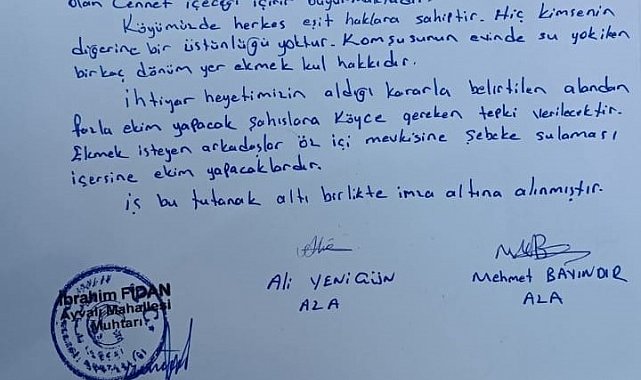 olan Cennet içeceği içinir
Köyümüzde herkes eşit haklara sahiptir. Hiç kimsenin
diğerine bir üstünlüğü yoktur. Komşusunun evinde su yokiken
birkaç dönüm yer ekmek kul hakkıdır.
İhtiyar heyetimizin aldığı kararla belirtilen alandan
fazla ekim yapacak şahıslara Köyce gereken tepki verilecektir.
Ekmek isteyen arkadaşlar öz içi mevkisine Şebeke sulaması
içersine ekim yapacaklardır.
iş bu tutanak altı birlikte imza altına alınmıştır.
İbrahim FİDAN
Ayvalı Mahallesi
Muhtarı
Ali YENİGÜN
AZA
Mehmet BAYINDIR
AZA